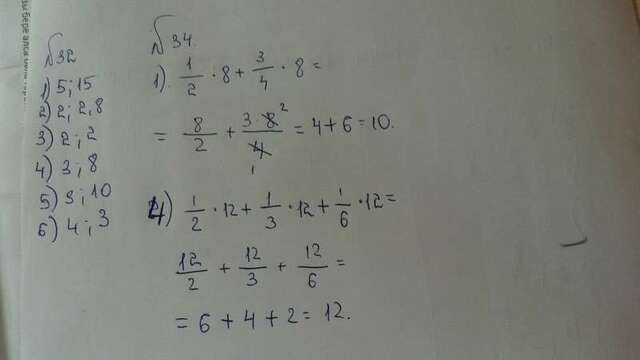 №32
1) 5; 15
2) 2; 2,8
3) 2; 2
4) 3; 8
5) 3; 10
6) 4; 3
№34.
1). 1/2 · 8 + 3/4 · 8 =
= 8/2 + 3·8/4 = 4 + 6 = 10.
4) 1/2 · 12 + 1/3 · 12 + 1/6 · 12 =
12/2 + 12/3 + 12/6 =
= 6 + 4 + 2 = 12.